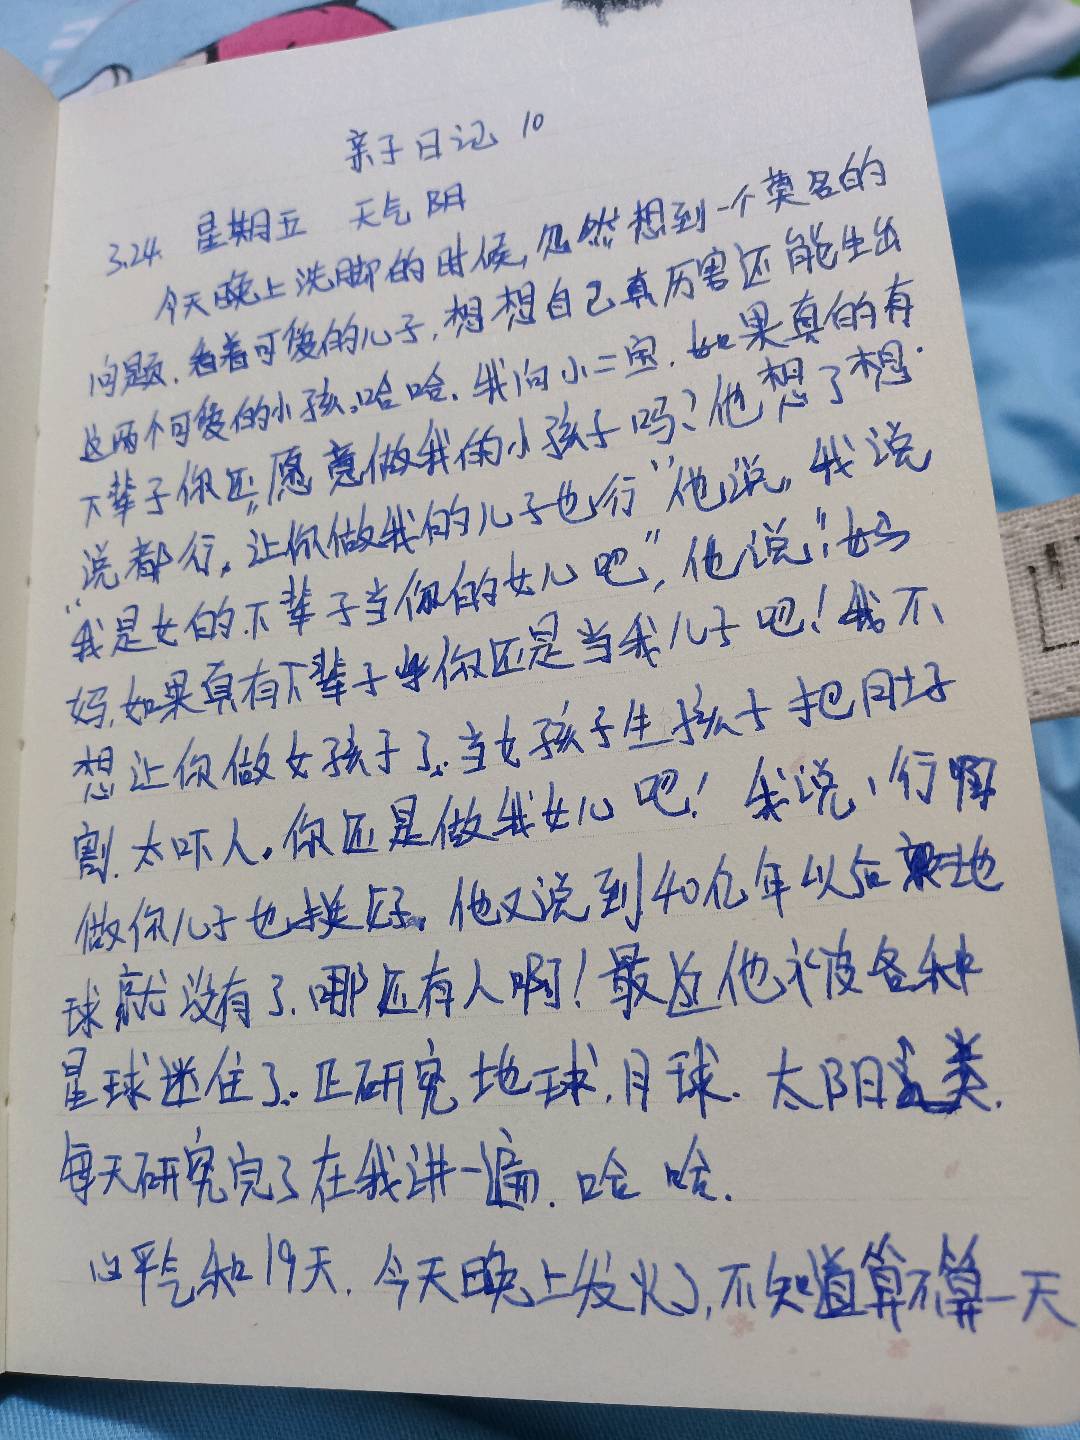 亲子日记 10
3.24. 星期五 天气 阴
今天晚上洗脚的时候,忽然想到一个莫名的
问题.看着可爱的儿子,想想自己真厉害还能生出
这两个可爱的小孩。哈哈.我问小二宝.如果真的有
下辈子你还愿意做我的小孩子吗?他想了想.
说都行。"让你做我的儿子也行"他说,我说
"我是女的.下辈子当你的女儿吧",他说"妈
妈,如果真有下辈子你还是当我儿子吧!我不
想让你做女孩子了.当女孩子生孩子把肚子
割.太吓人。你还是做我女儿吧!我说,行啊
做你儿子也挺好。他又说到40亿年以后地
球就没有了.哪还有人啊!最近他被各种
星球迷住了.正研究地球,月球.太阳之类.
每天研究完了在我讲一遍.哈哈.
心平气和19天.今天晚上发火了,不知道算不算一天